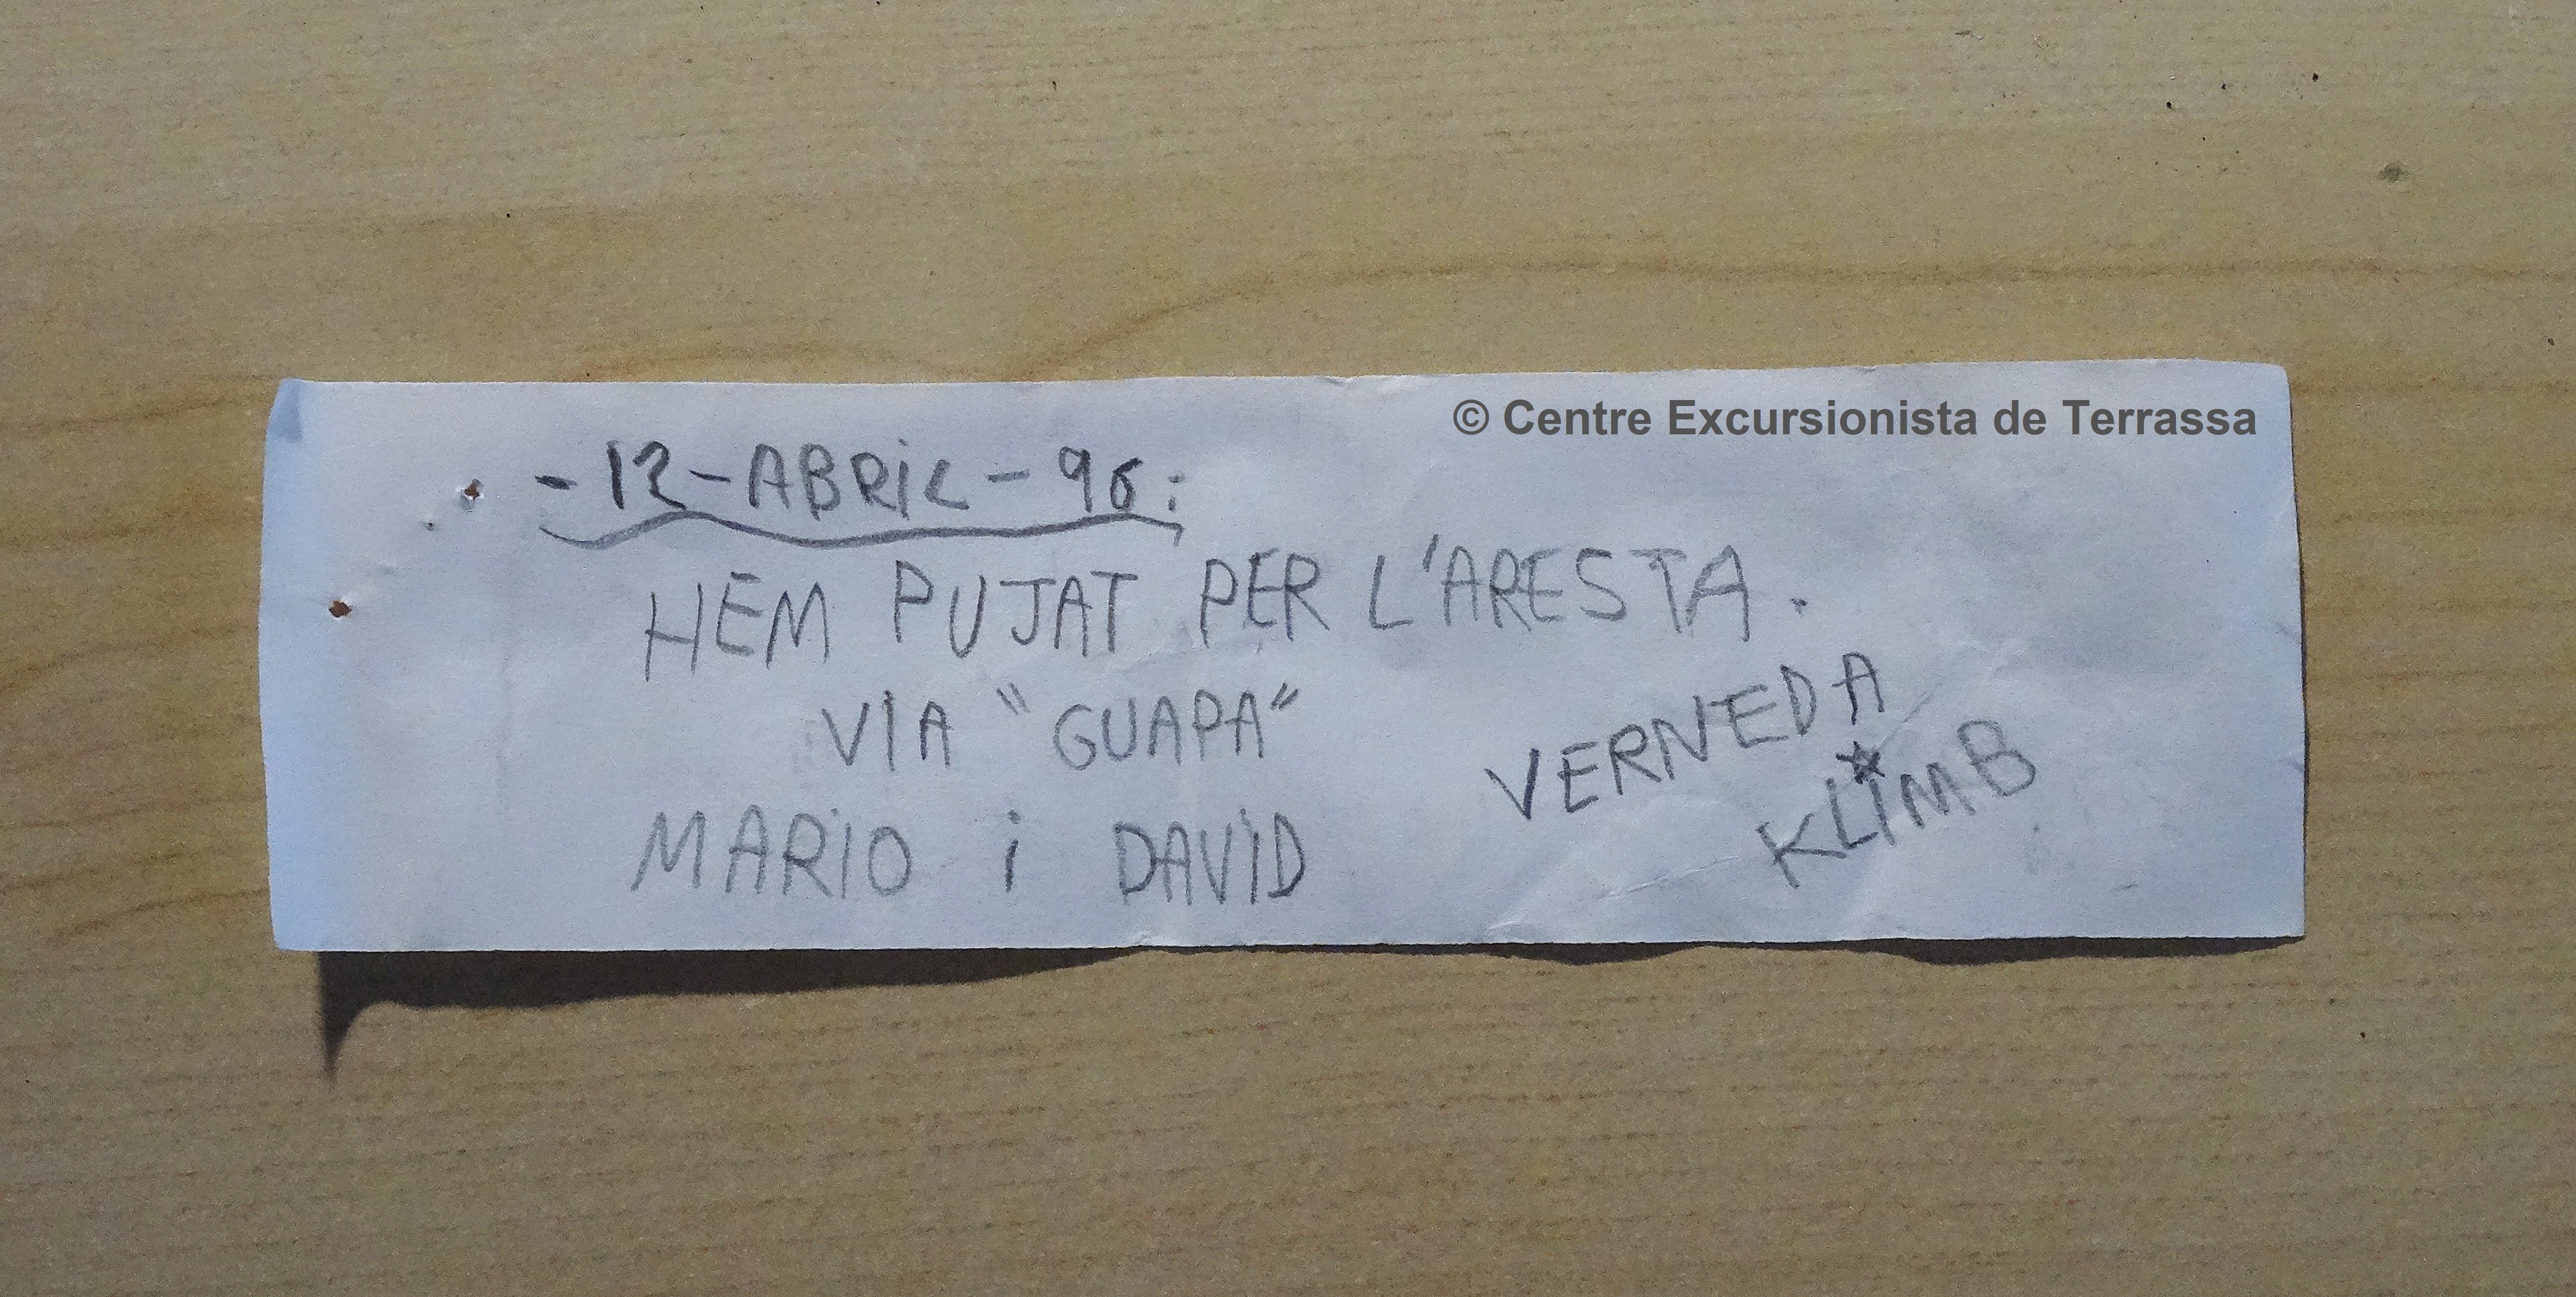 © Centre Excursionista de Terrassa
-12-ABRIL-96:
HEM PUJAT PER L'ARESTA.
VIA "GUAPA"
MARIO i DAVID
VERNEDA
KLIMB